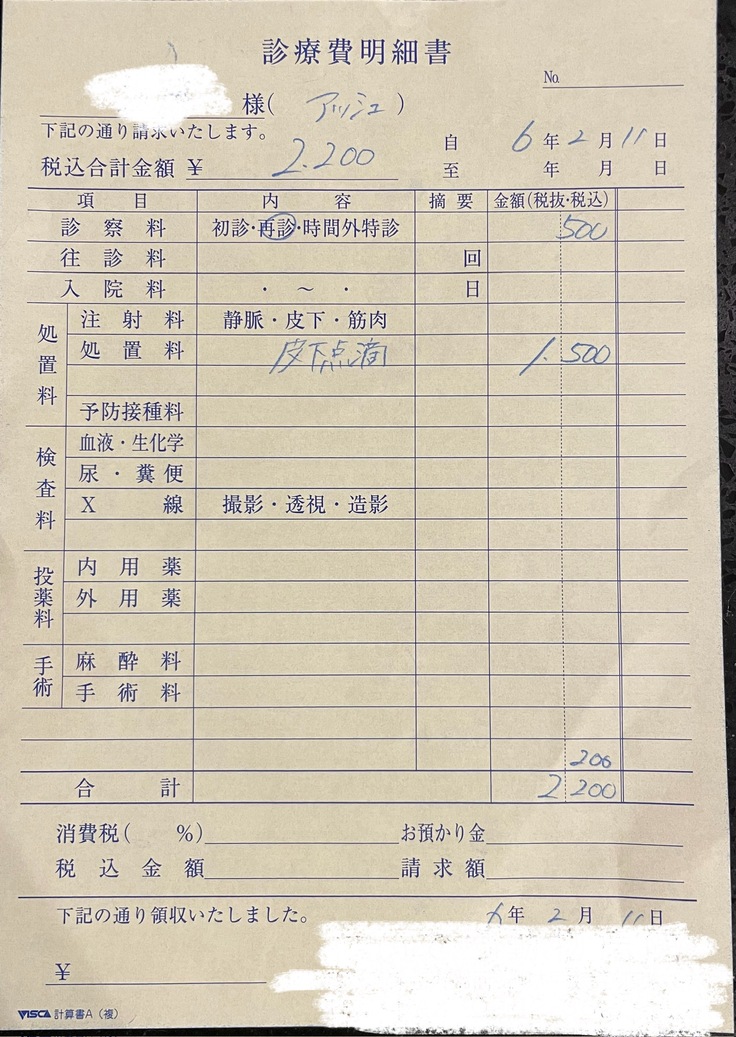 診療費明細書
No.
様( アッシュ )
下記の通り請求いたします。
自 6年2月11日
税込合計金額 ¥ 2.200
至 年 月 日
項目 内容 摘要 金額(税抜・税込)
診察料 初診・再診・時間外特診 500
往診料 回
入院料 ・ ～ ・ 日
処置料
注射料 静脈・皮下・筋肉
処置料 皮下点滴 1.500
予防接種料
検査料
血液・生化学
尿・糞便
X線 撮影・透視・造影
投薬料
内用薬
外用薬
手術
麻酔料
手術料
200
合計 2200
消費税( %) お預かり金
税込金額 請求額
下記の通り領収いたしました。 6年2月11日
¥
VISCA 計算書A（複）